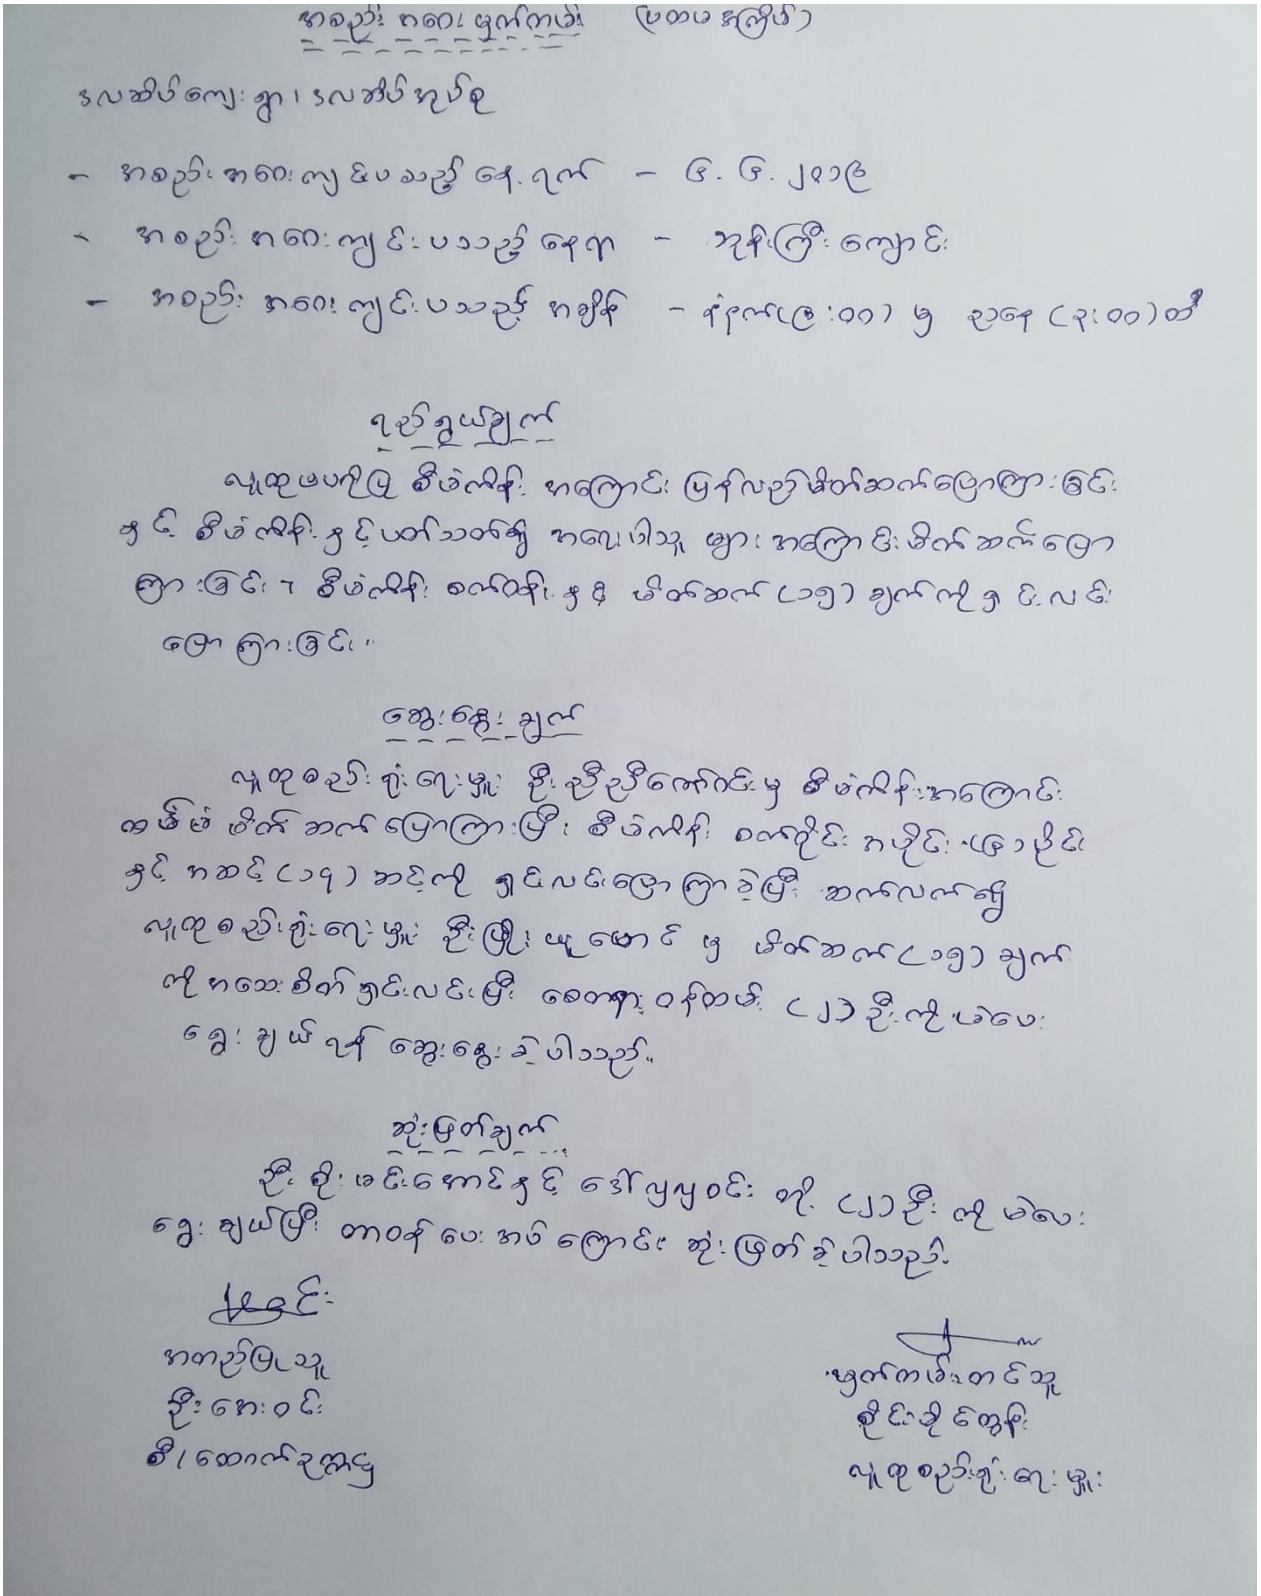 အစည်းအဝေးမှတ်တမ်း (ပထမအကြိမ်)
ဒလအိပ်ကျေးရွာ၊ ဒလအိပ်အုပ်စု
- အစည်းအဝေးကျင်းပသည့်နေ့ရက် - ၆.၆.၂၀၁၉
- အစည်းအဝေးကျင်းပသည့်နေရာ - ဘုန်းကြီးကျောင်း
- အစည်းအဝေးကျင်းပသည့်အချိန် - နံနက်(၉:၀၀) မှ ညနေ (၃:၀၀)ထိ
ရည်ရွယ်ချက်
လူထုဗဟိုပြု စီမံကိန်းအကြောင်း ပြန်လည်မိတ်ဆက်ပြောကြားခြင်း
နှင့် စီမံကိန်းနှင့်ပတ်သတ်၍ အရေးပါသူများအကြောင်းမိတ်ဆက်ပြော
ကြားခြင်း၊ စီမံကိန်းစက်ဝန်းနှင့် မိတ်ဆက်(၁၅)ချက်ကိုရှင်းလင်း
ပြောကြားခြင်း။
ဆွေးနွေးချက်
လူထုစည်းရုံးရေးမှူး ဦးညီညီဇော်ဝင်းမှ စီမံကိန်းအကြောင်း
ထမ်မံမိတ်ဆက်ပြောကြားပြီး စီမံကိန်းစက်ဝိုင်းအပိုင်း (၆)ပိုင်း
နှင့် အဆင့်(၁၇)ဆင့်ကို ရှင်းလင်းပြောကြာခဲ့ပြီး ဆက်လက်၍
လူထုစည်းရုံးရေးမှူး ဦးဖြိုးယူမောင်မှ မိတ်ဆက်(၁၅)ချက်
ကိုအသေးစိတ်ရှင်းလင်းပြီး စေတနာ့ဝန်ထမ်း (၂)ဦးကို မဲပေး
ရွေးချယ်ရန် ဆွေးနွေးခဲ့ပါသည်။
ဆုံးဖြတ်ချက်
ဦးစိုးမင်းအောင်နှင့် ဒေါ်လှလှဝင်း တို့ (၂)ဦးကို မဲပေး
ရွေးချယ်ပြီး တာဝန်ပေးအပ်ကြောင်း ဆုံးဖြတ်ခဲ့ပါသည်။
အတည်ပြုသူ
ဦးအေးဝင်း
စီ/ထောက်ဥက္ကဋ္ဌ
မှတ်တမ်းတင်သူ
စိုင်းခိုင်ထွန်း
လူထုစည်းရုံးရေးမှူး